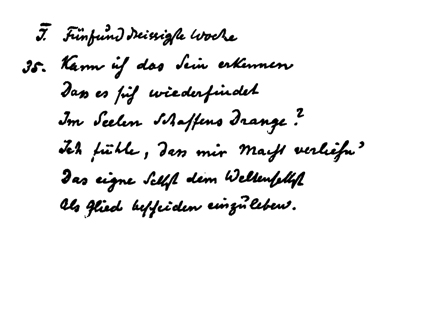 I. Fünfunddreissigste Woche
35. Kann ich das Sein erkennen
Dass es sich wiederfindet
Im Seelen Schaffens Drange?
Ich fühle, dass mir Macht verliehn'
Das eigne Selbst dem Weltenselbst
Als Glied bescheiden einzuleben.